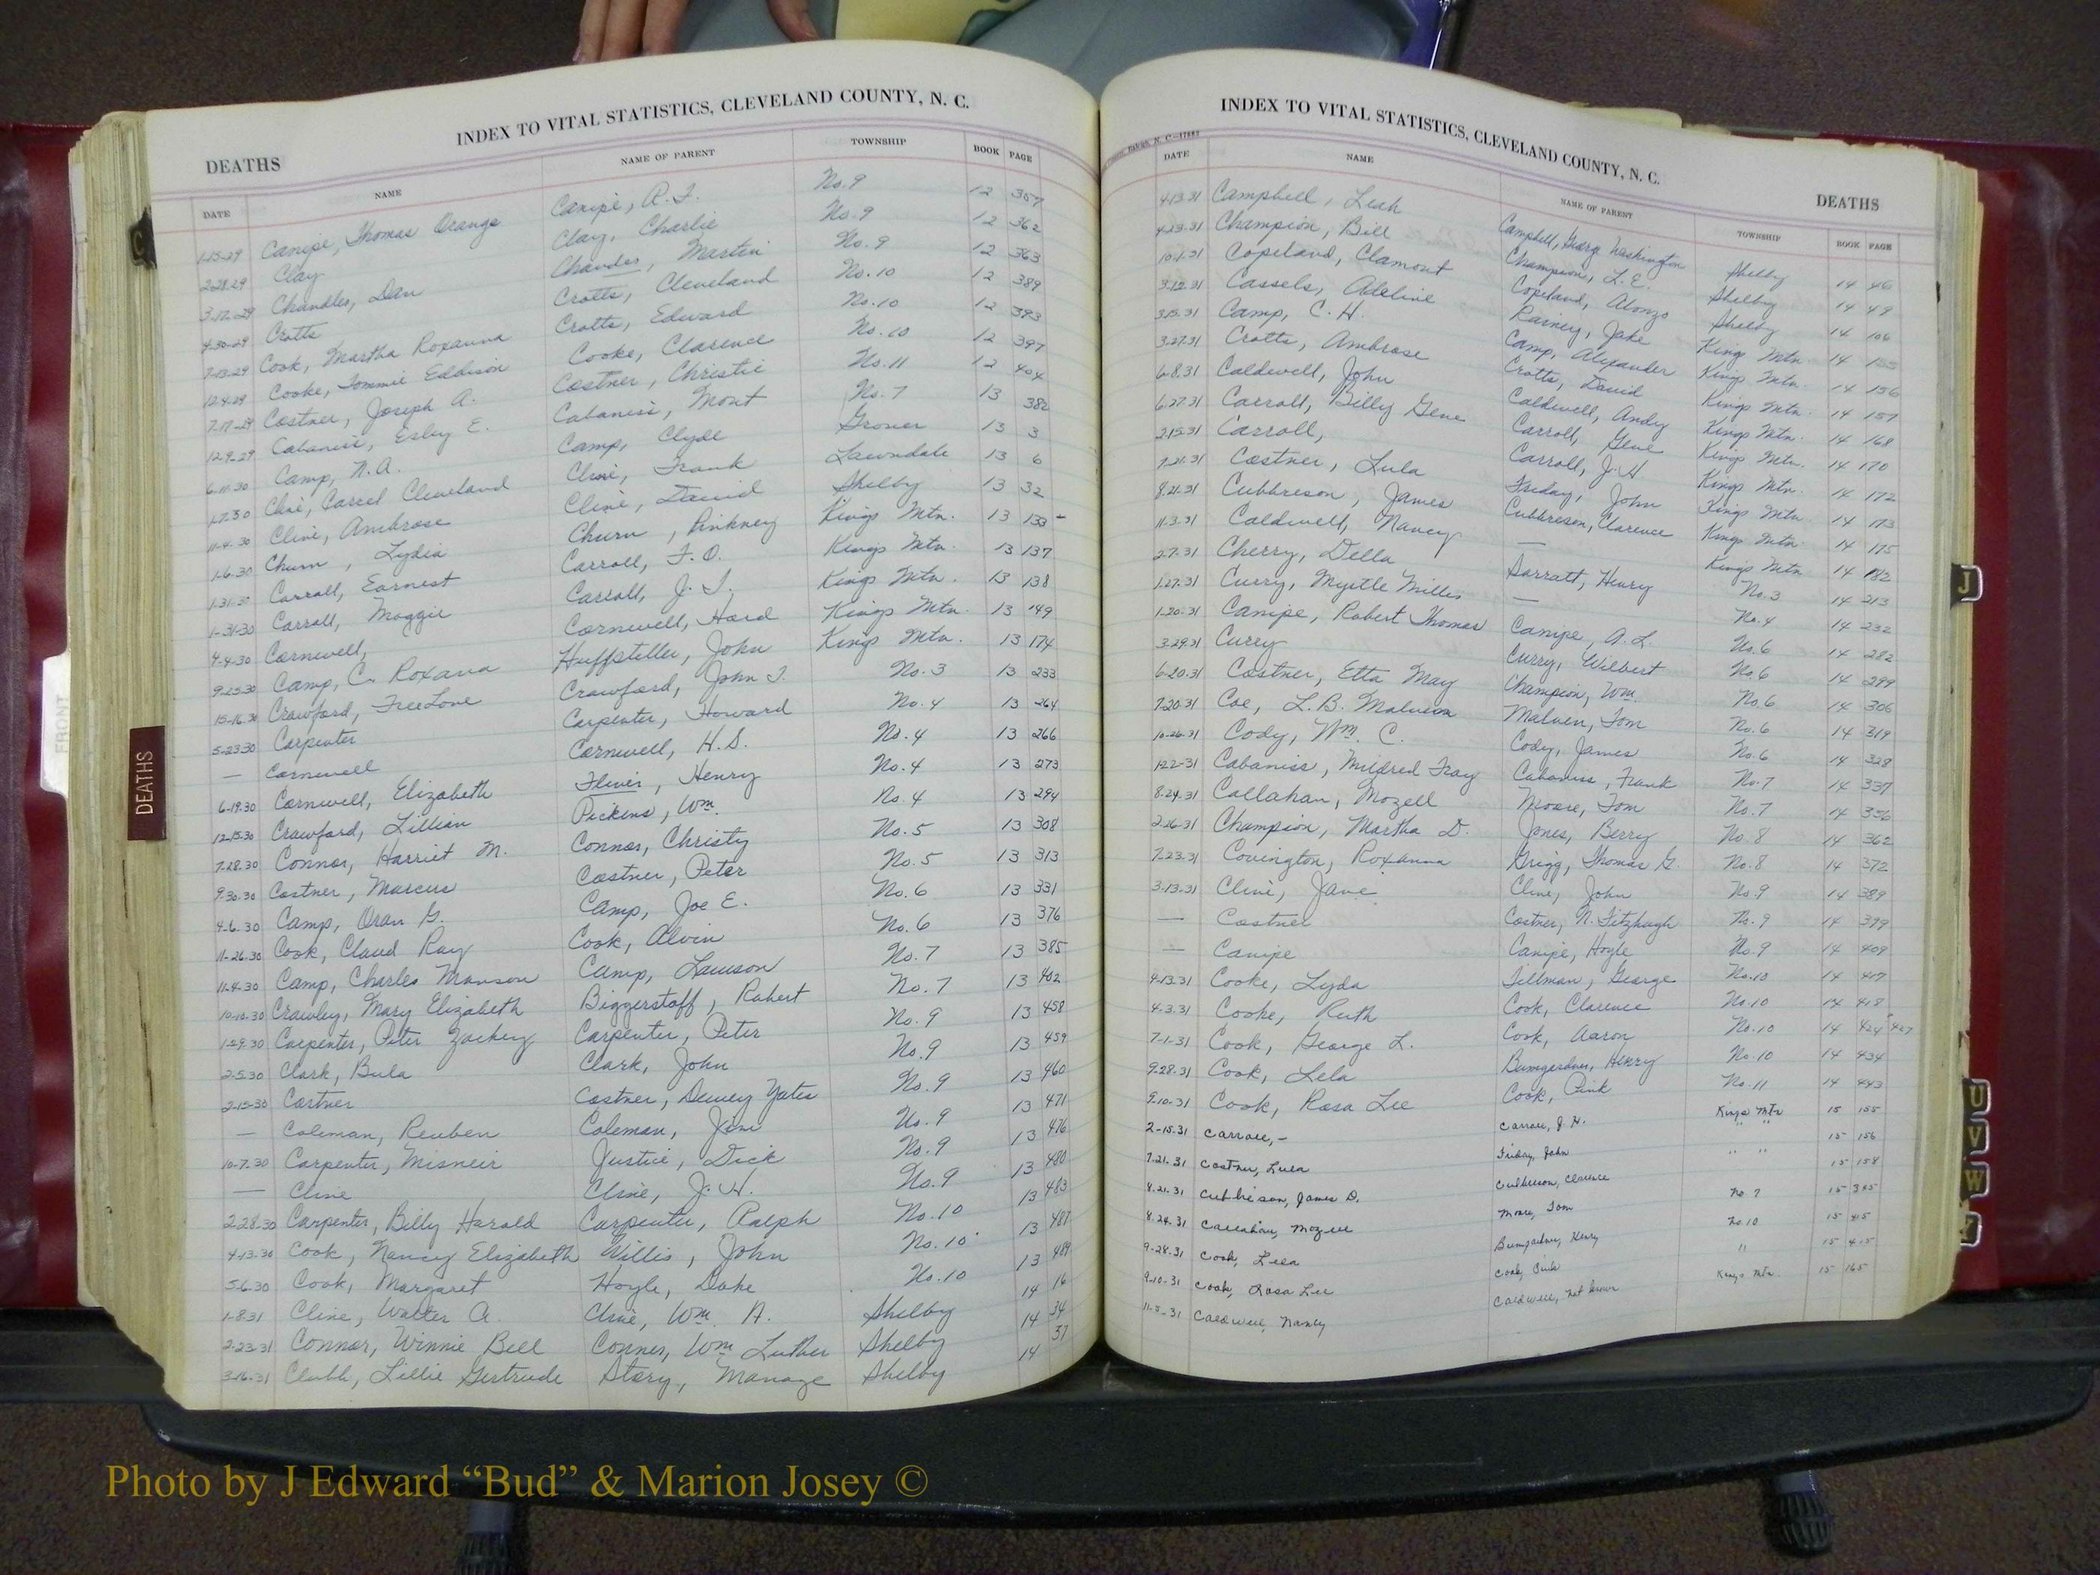 INDEX TO VITAL STATISTICS, CLEVELAND COUNTY, N. C.
DEATHS
DATE NAME NAME OF PARENT TOWNSHIP BOOK PAGE
1-15-29 Canipe, Thomas Orange Canipe, R. F. No. 9 12 357
2-28-29 Clay Clay, Charlie No. 9 12 362
3-17-29 Chandles, Dan Chandes, Martin No. 9 12 363
4-30-29 Crotts Crotts, Cleveland No. 10 12 389
7-13-29 Cook, Martha Roxanna Crotts, Edward No. 10 12 393
12-4-29 Cooke, Tommie Eddison Cooke, Clarence No. 10 12 397
7-17-29 Costner, Joseph A. Costner, Christie No. 11 12 404
12-9-29 Cabaniss, Esley E. Cabaniss, Mont No. 7 13 382
6-11-30 Camp, N. A. Camp, Clyde Grover 13 3
1-7-30 Cline, Carcel Cleveland Cline, Frank Lawndale 13 6
11-4-30 Cline, Ambrose Cline, David Shelby 13 32
1-6-30 Churn, Lydia Churn, Pinkney Kings Mtn. 13 133
1-31-3 Carroll, Earnest Carroll, F. O. Kings Mtn. 13 137
1-31-30 Carroll, Maggie Carroll, J. T. Kings Mtn. 13 138
4-4-30 Cornwell, Cornwell, Hard Kings Mtn. 13 149
9-25-30 Camp, C. Roxana Huffstiller, John Kings Mtn. 13 174
15-16-30 Crawford, FreeLove Crawford, John T. No. 3 13 233
5-23-30 Carpenter Carpenter, Howard No. 4 13 264
— Cornwell Cornwell, H. S. No. 4 13 266
6-19-30 Cornwell, Elizabeth Henry No. 4 13 273
12-15-30 Crawford, Lillian Pickens, Wm. No. 4 13 294
7-28-30 Connor, Harriet M. Connor, Christy No. 5 13 308
9-30-30 Costner, Marcus Costner, Peter No. 5 13 313
4-6-30 Camp, Oran G. Camp, Joe E. No. 6 13 331
11-26-30 Cook, Claud Ray Cook, Alvin No. 6 13 376
11-4-30 Camp, Charles Manson Camp, Lawson No. 7 13 385
10-10-30 Crawley, Mary Elizabeth Biggerstaff, Robert No. 7 13 402
1-29-30 Carpenter, Peter Zachery Carpenter, Peter No. 9 13 458
2-5-30 Clark, Bula Clark, John No. 9 13 459
2-15-30 Costner Costner, Dewey Yates No. 9 13 460
— Coleman, Reuben Coleman, Jim No. 9 13 471
10-7-30 Carpenter, Misneir Justice, Dick No. 9 13 476
— Cline Cline, J. H. No. 9 13 480
2-28-30 Carpenter, Billy Harold Carpenter, Ralph No. 10 13 483
4-13-30 Cook, Nancy Elizabeth Willis, John No. 10 13 487
5-6-30 Cook, Margaret Hoyle, Duke No. 10 13 489
1-8-31 Cline, Walter A. Cline, Wm. A. Shelby 14 16
2-23-31 Connor, Winnie Bell Conner, Wm Luther Shelby 14 34
3-16-31 Chubb, Lillie Gertrude Story, Shelby 14 37
INDEX TO VITAL STATISTICS, CLEVELAND COUNTY, N. C.
DEATHS
DATE NAME NAME OF PARENT TOWNSHIP BOOK PAGE
4-13-31 Campbell, Leah Campbell, George Washington Shelby 14 46
4-23-31 Champion, Bill Champion, L. E. Shelby 14 49
10-1-31 Copeland, Clamont Copeland, Alonzo Shelby 14 106
3-12-31 Cassels, Adeline Rainey, Jake Kings Mtn. 14 155
3-15-31 Camp, C. H. Camp, Alexander Kings Mtn. 14 156
3-27-31 Crotts, Ambrose Crotts, David Kings Mtn. 14 157
6-8-31 Caldwell, John Caldwell, Andy Kings Mtn. 14 168
6-27-31 Carroll, Billy Gene Carroll, Gene Kings Mtn. 14 170
2-15-31 Carroll, Carroll, J. H. Kings Mtn. 14 172
7-21-31 Costner, Lula Friday, John Kings Mtn. 14 173
8-21-31 Cubbreson, James Cubbreson, Clarence Kings Mtn. 14 175
11-3-31 Caldwell, Nancy — Kings Mtn 14 182
2-7-31 Cherry, Della Sarratt, Henry No. 3 14 213
1-27-31 Curry, Myrtle Millis — No. 4 14 232
1-20-31 Canipe, Robert Thomas Canipe, A. L. No. 6 14 282
3-29-31 Curry Curry, Wilbert No. 6 14 299
6-20-31 Costner, Etta May Champion, Wm. No. 6 14 306
7-20-31 Coe, L. B. Malvein Malven, Tom No. 6 14 319
10-26-31 Cody, Wm. C. Cody, James No. 6 14 328
1-22-31 Cabaniss, Mildred Fray Cabaniss, Frank No. 7 14 337
8-24-31 Callahan, Mozell Moore, Tom No. 7 14 356
2-16-31 Champion, Martha D. Jones, Berry No. 8 14 362
7-23-31 Covington, Roxanna Grigg, Thomas G. No. 8 14 372
3-13-31 Cline, Jane Cline, John No. 9 14 389
— Costner Costner, N. Fitzhugh No. 9 14 399
— Canipe Canipe, Hoyle No. 9 14 409
4-13-31 Cooke, Lyda Tillman, George No. 10 14 417
4-3-31 Cooke, Ruth Cook, Clarence No. 10 14 418
7-1-31 Cook, George L. Cook, Aaron No. 10 14 424 427
9-28-31 Cook, Lela Bumgardner, Henry No. 10 14 434
9-10-31 Cook, Rosa Lee Cook, Pink No. 11 14 443
2-15-31 Carroll, - Carroll, J. H. Kings Mtn 15 155
7-21-31 Costner, Lula Friday, John " " 15 156
8-21-31 Culbieson, James D. Culbieson, Clarence " " 15 158
8-24-31 Callahan, Mozell Moore, Tom No. 7 15 385
9-28-31 Cook, Lela Bumgardner, Henry No. 10 15 415
9-10-31 Cook, Rosa Lee Cook, Pink " 15 415
11-3-31 Caldwell, Nancy Caldwell, not known Kings Mtn 15 165
C
DEATHS
FRONT
J
U
V
W
Photo by J Edward “Bud” & Marion Josey ©